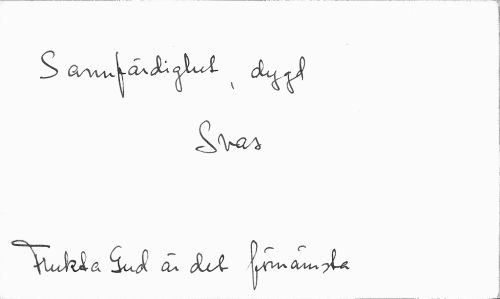 Sannfärdighet, dygd
Svas
Frukta Gud är det förnämsta